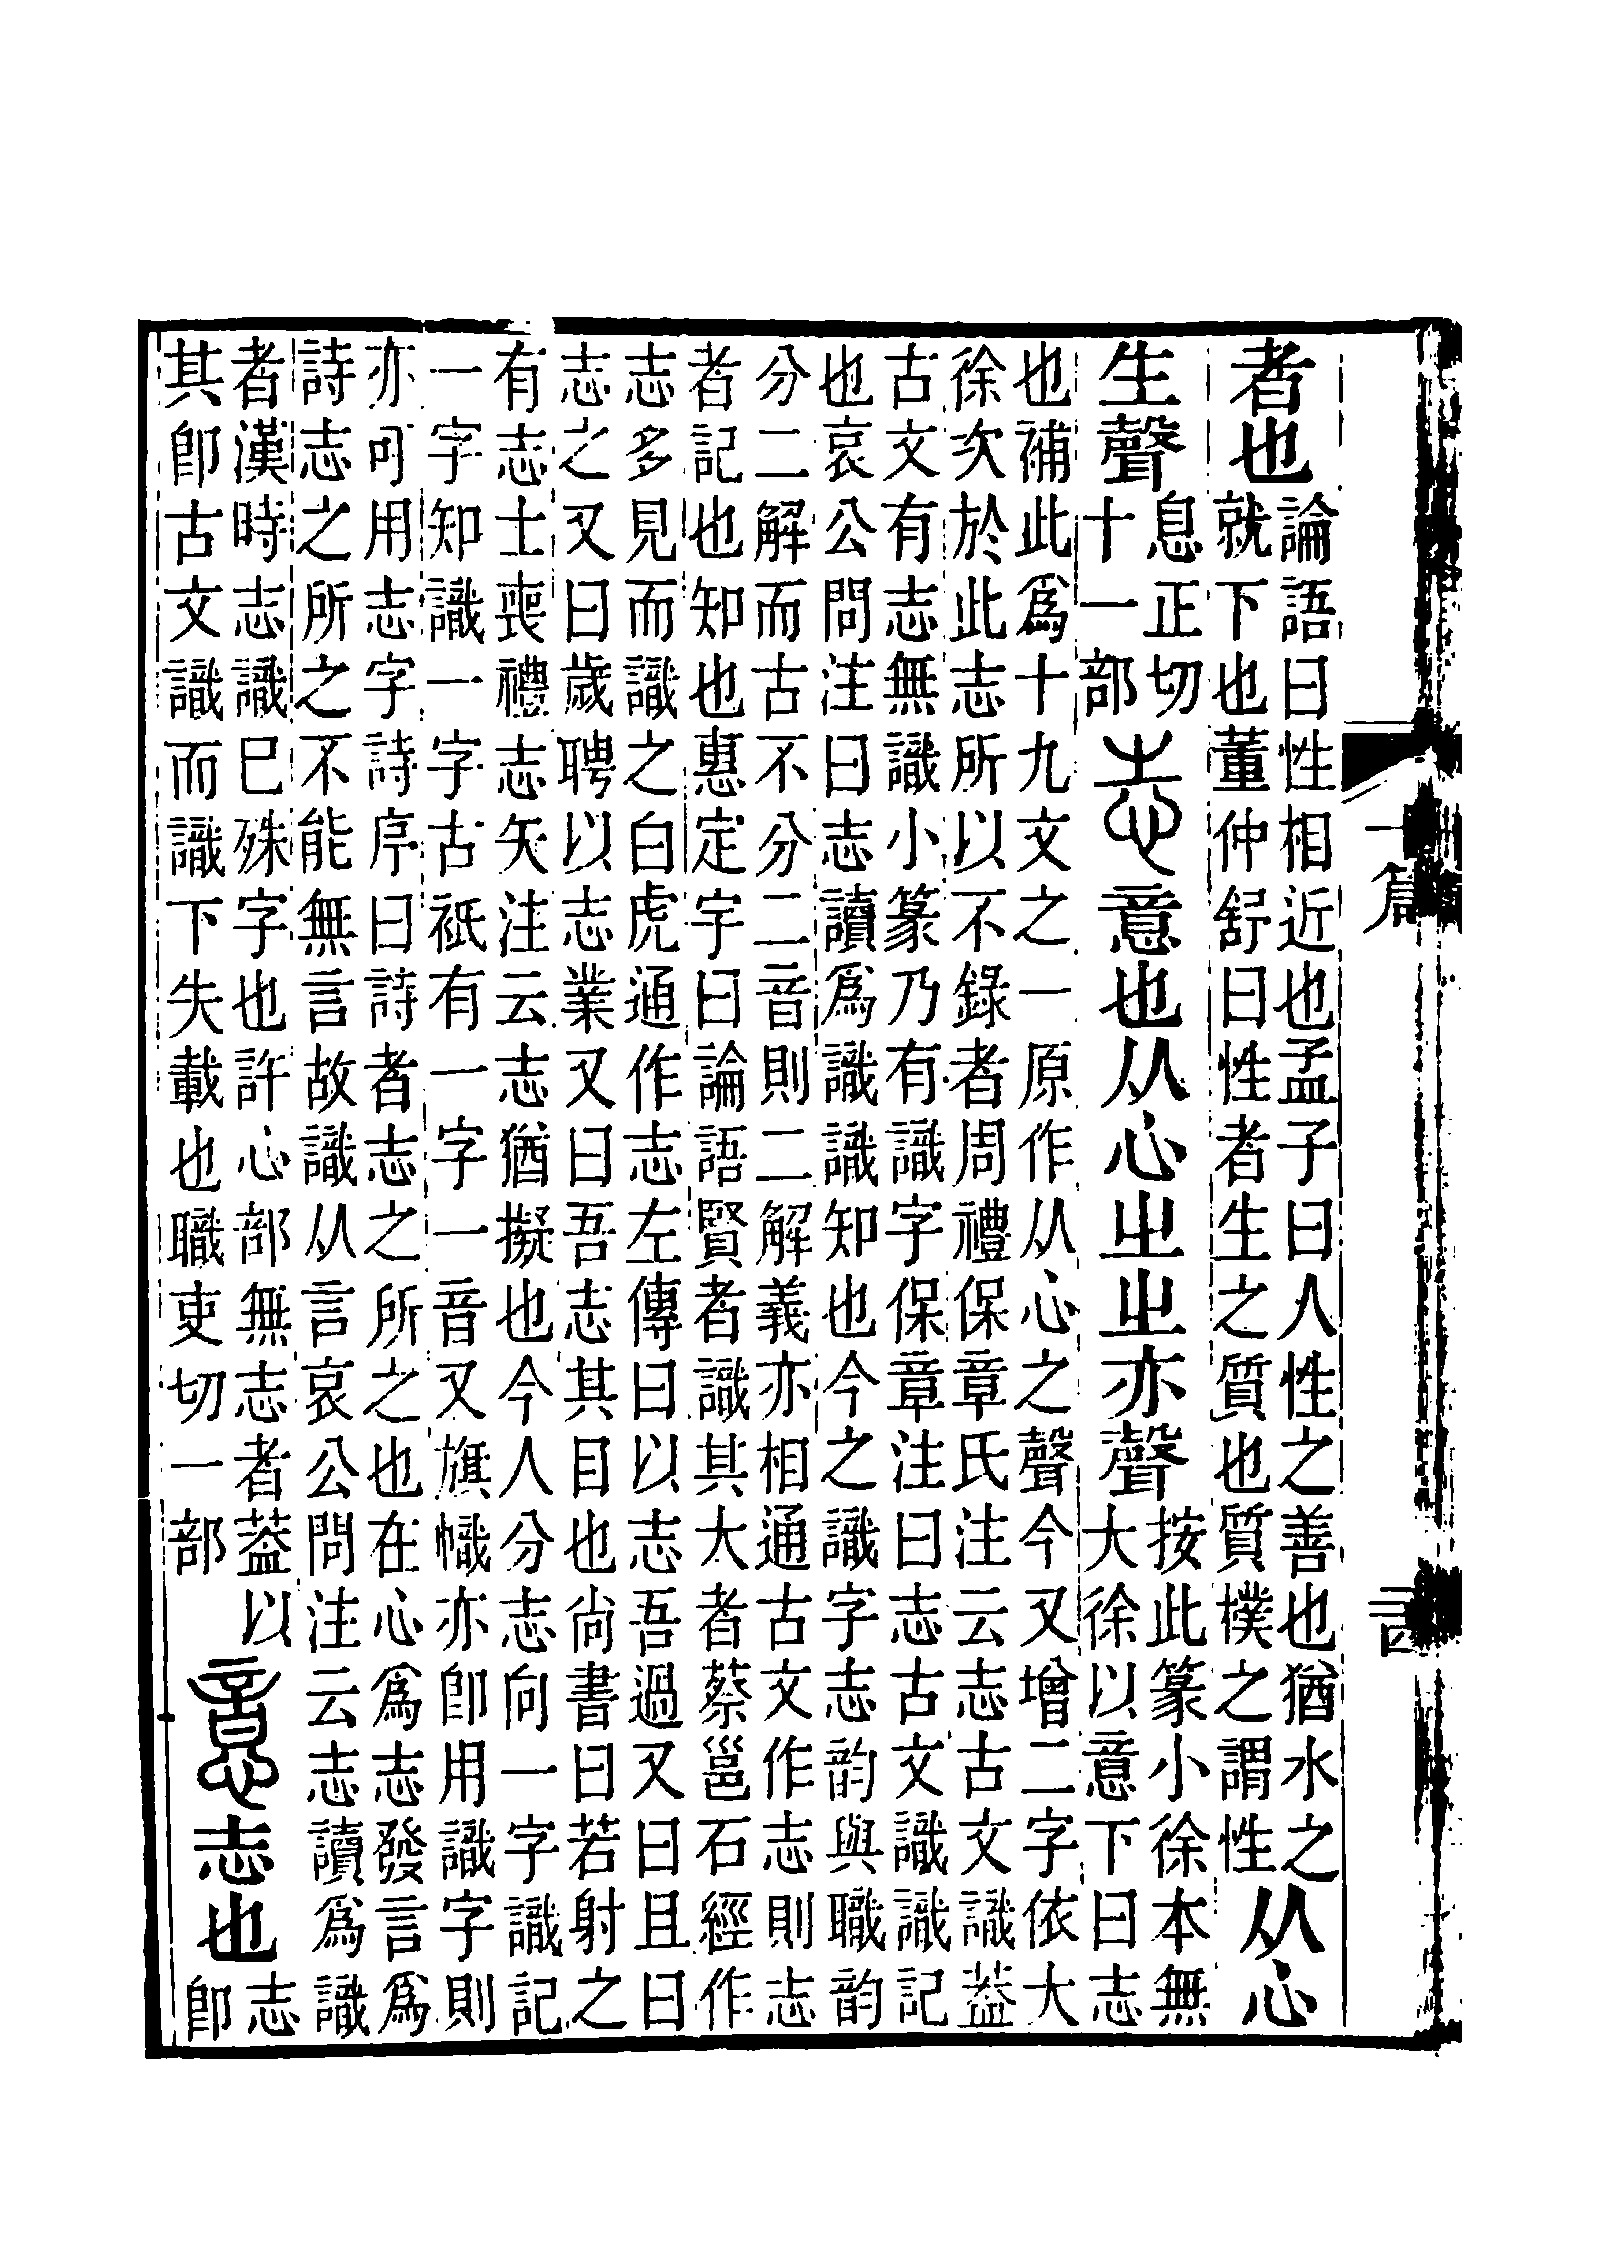 者也論語曰性相近也孟子曰人性之善也猶水之
就下也董仲舒曰性者生之質也質樸之謂性从心
生聲息正切
十一部志意也从心㞢㞢亦聲按此篆小徐本無
大徐以意下曰志
也補此爲十九文之一原作从心之聲今又增二字依大
徐次於此志所以不錄者周禮保章氏注云志古文識葢
古文有志無識小篆乃有識字保章注曰志古文識識記
也哀公問注曰志讀爲識識知也今之識字志韵與職韵
分二解而古不分二音則二解義亦相通古文作志則志
者記也知也惠定宇曰論語賢者識其大者蔡邕石經作
志多見而識之白虎通作志左傳曰以志吾過又曰且曰
志之又曰歲聘以志業又曰吾志其目也尙書曰若射之
有志士喪禮志矢注云志猶擬也今人分志向一字識記
一字知識一字古祇有一字一音又旗幟亦卽用識字則
亦可用志字詩序曰詩者志之所之也在心爲志發言爲
詩志之所之不能無言故識从言哀公問注云志讀爲識
者漢時志識巳殊字也許心部無志者葢以
其卽古文識而識下失載也職吏切一部意志也志
卽